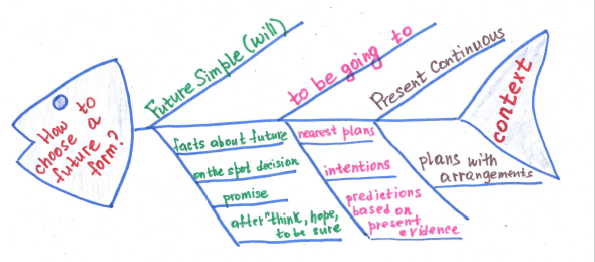 How to
choose a
future
form?
Future Simple (will)
facts about future
on the spot decision
promise
after "think, hope,
to be sure
to be going to
nearest plans
intentions
predictions
based on
present
evidence
Present Continuous
plans with
arrangements
context